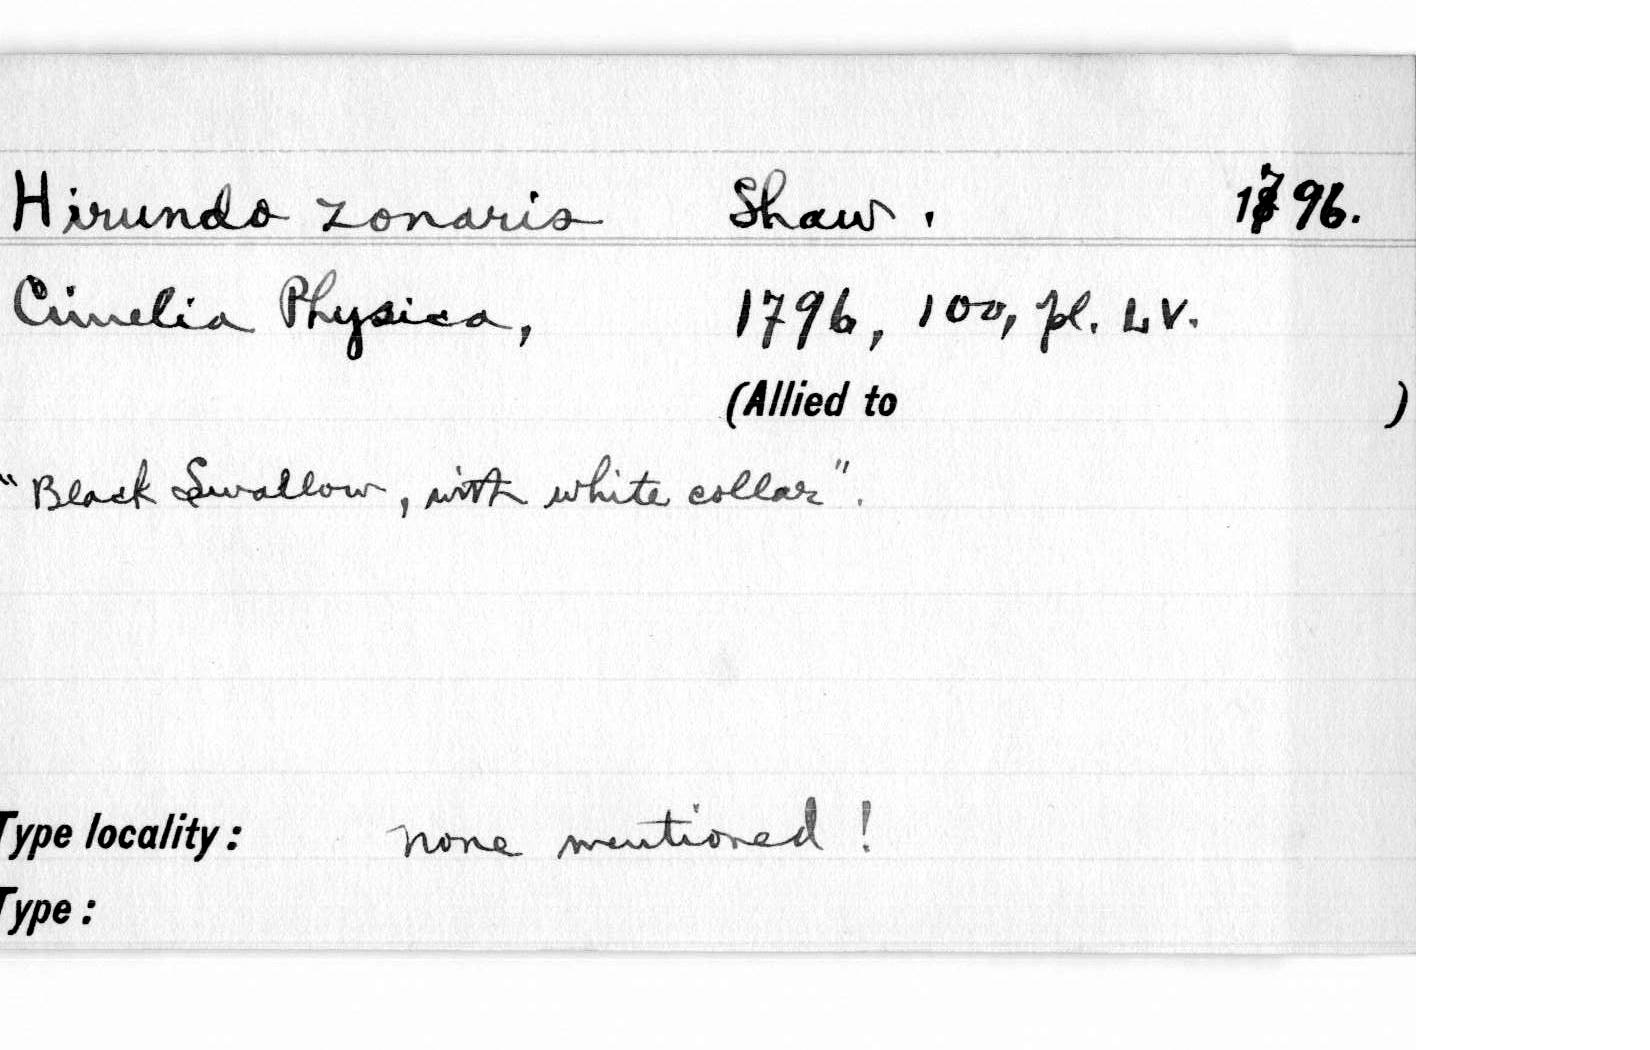 Hirundo zonaris Shaw. 1796.
Cimelia Physica, 1796, 100, pl. LV.
(Allied to )
"Black Swallow, with white collar".
Type locality: none mentioned!
Type: